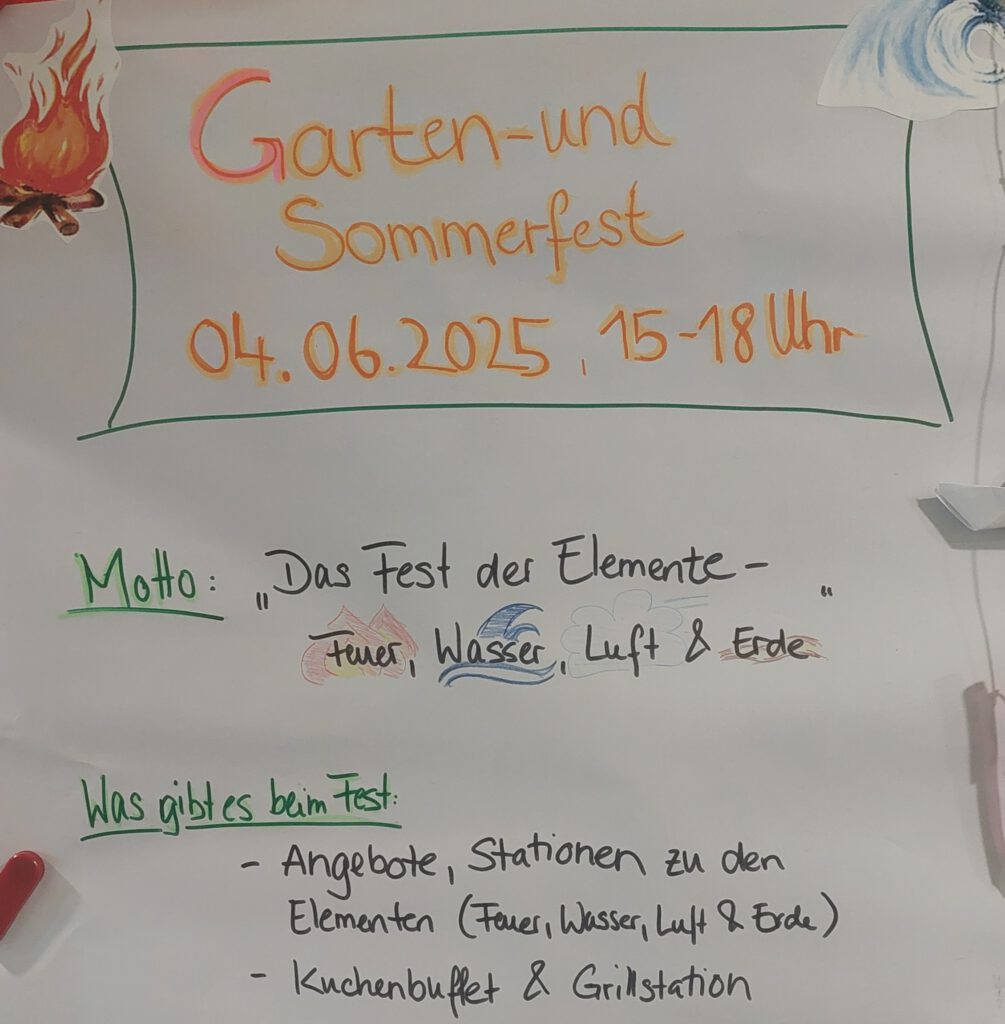 Garten-und
Sommerfest
04.06.2025, 15-18 Uhr
Motto: „Das Fest der Elemente - "
Feuer, Wasser, Luft & Erde
Was gibt es beim Fest:
- Angebote, Stationen zu den
Elementen (Feuer, Wasser, Luft & Erde)
- Kuchenbuffet & Grillstation